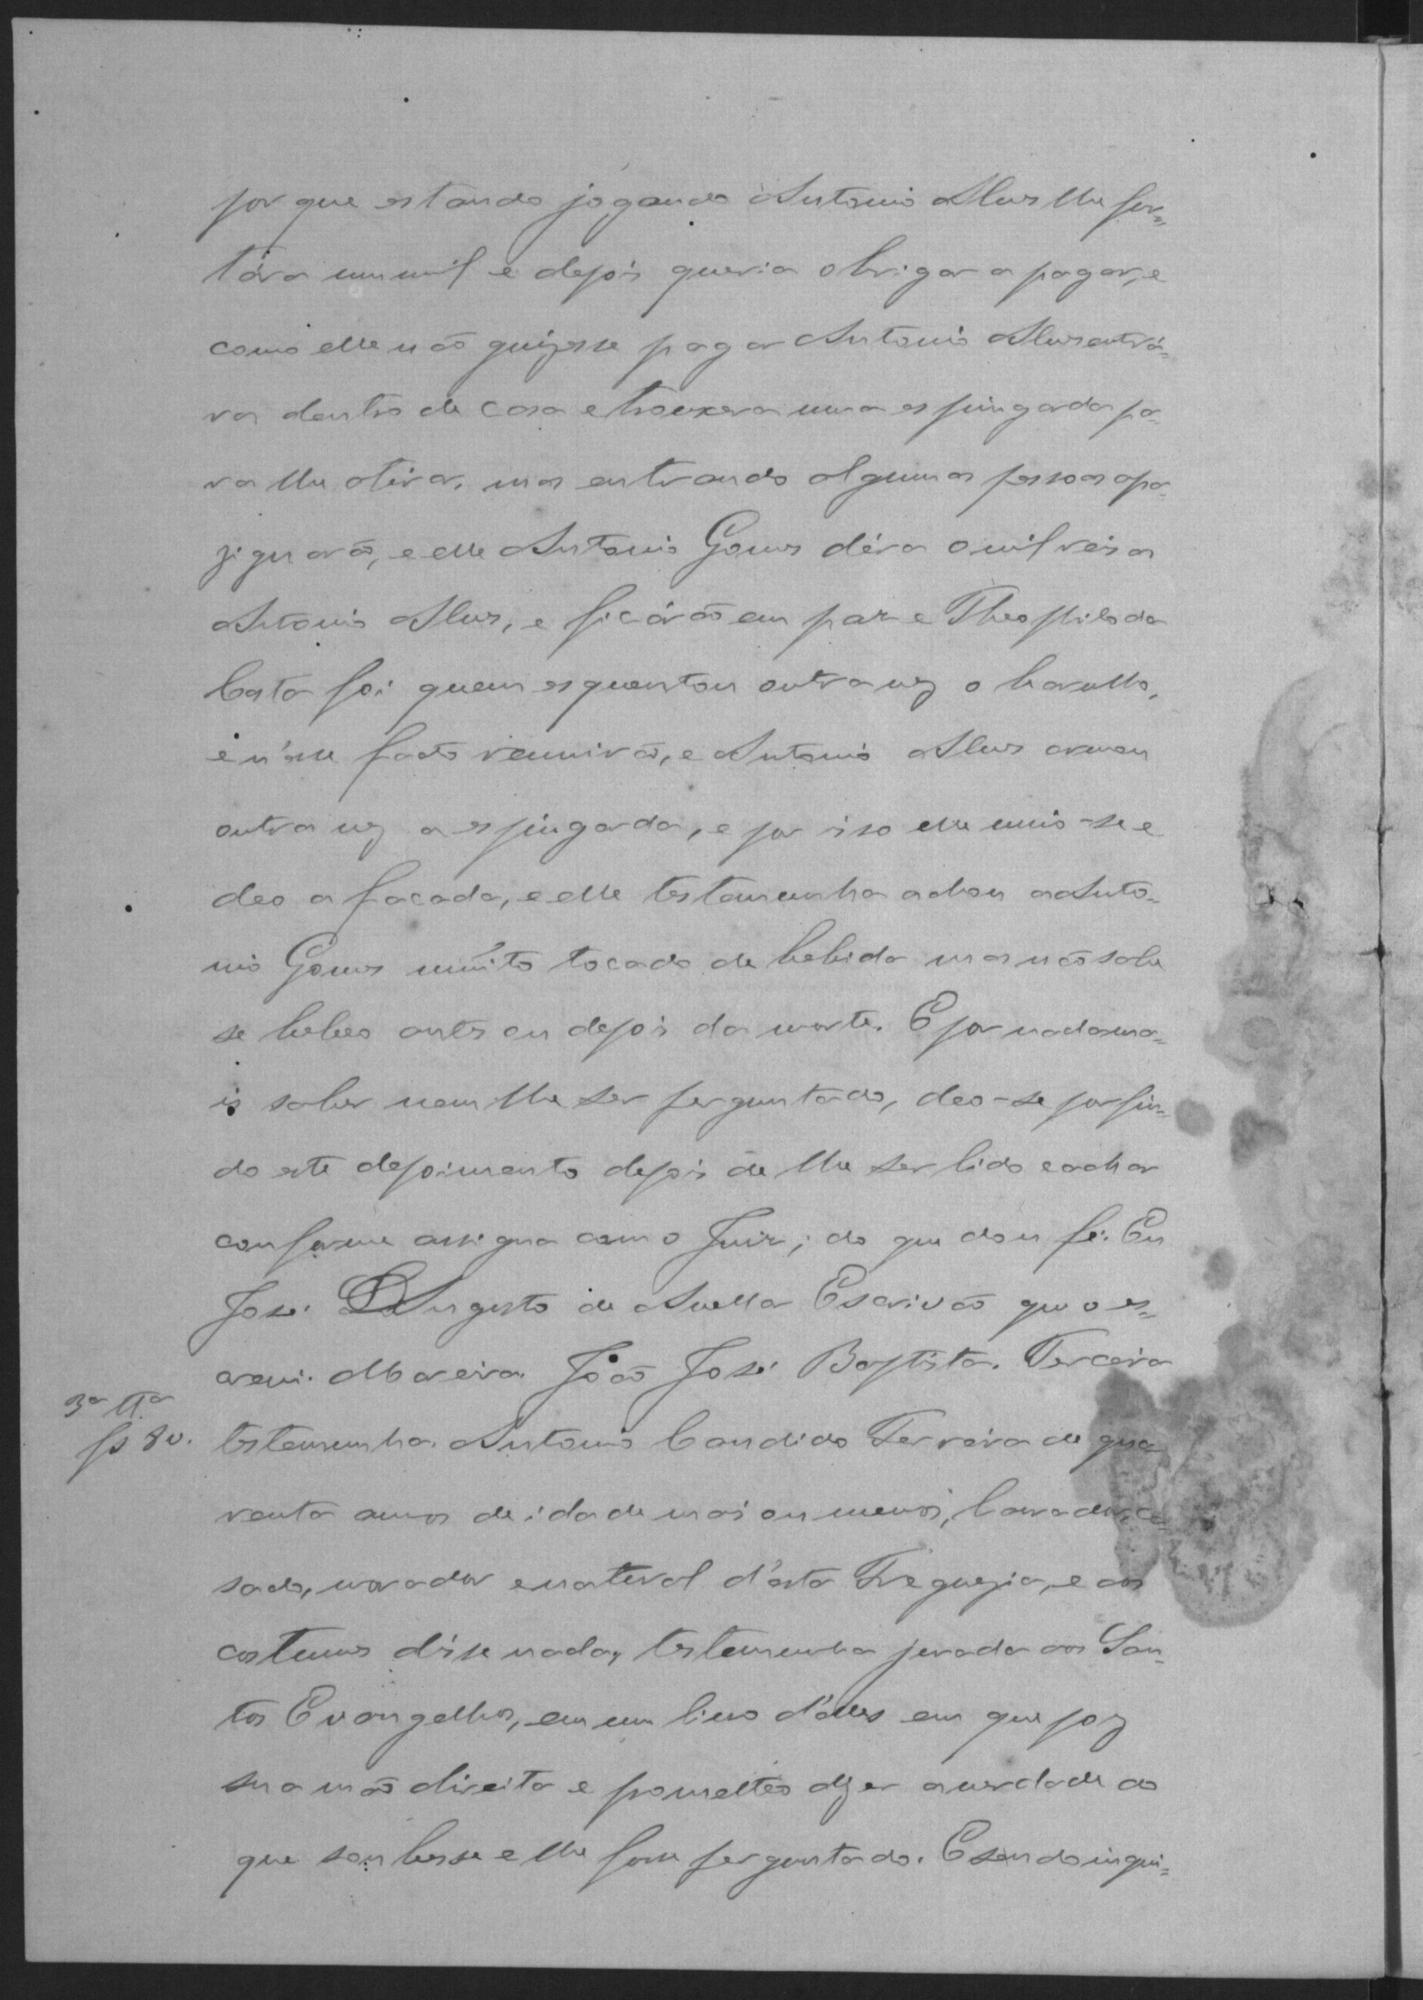 por que estando jogando Antonio Alves lhe fur-
tára um mil e depois queria obrigar a pagar, e
como elle não quizesse pagar Antonio Alves entrá-
ra dentro de casa e trouxera uma espingarda pa-
ra lhe atirar, mas entrando algumas pessoas apa-
ziguarão, e elle Antonio Gomes déra o mil reis a
Antonio Alves, e ficárão em paz e Theophilo da
Costa foi quem esquentou outra vez o barulho,
e n'esse facto reunirão, e Antonio Alves armou
outra vez a espingarda, e por isso elle unio-se e
deo a facada, e elle testemunha achou a Anto-
nio Gomes muito tocado de bebida mas não sabe
se bebeo antes ou depois da morte. E por nada ma-
is saber nem lhe ser perguntado, deo-se por fin-
do este depoimento depois de lhe ser lido e achar
conforme assigna com o Juiz; do que dou fé. Eu
José Augusto de Avellar Escrivão que o es-
crevi. Moreira. João José Baptista. Terceira
3ª Tª
fs 8v.
testemunha. Antonio Candido Ferreira de qua-
renta annos de idade mais ou menos, lavrador, ca-
sado, morador e natural d'esta Freguezia, e aos
costumes disse nada, testemunha jurada aos San-
tos Evangelhos, em um livro d'elles em que poz
sua mão direita e prometteo dizer a verdade do
que soubesse e lhe fosse perguntado. E sendo inqui-